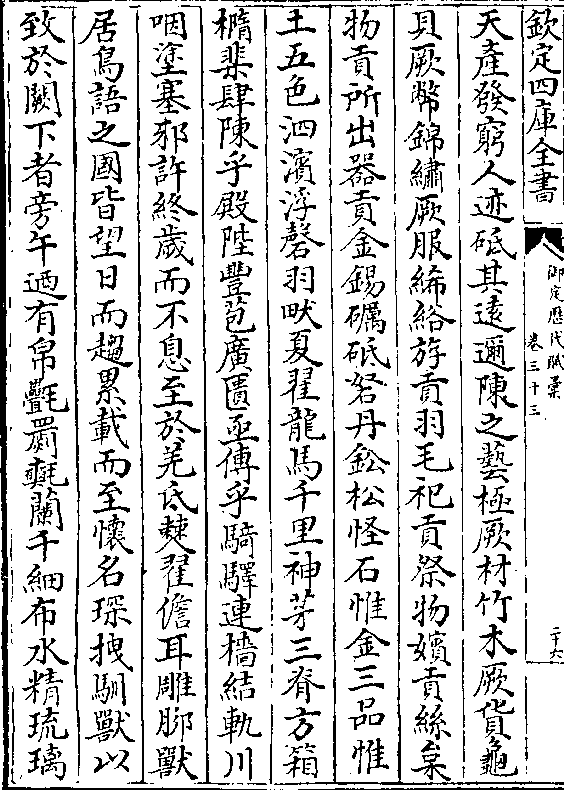 欽定四庫全書
御定歷代賦彙
卷三十三
二十六
天產發窮人迹砥其逺邇陳之藝極厥材竹木厥貨龜
貝厥幣錦繡厥服絺綌斿貢羽毛祀貢祭物嬪貢絲枲
物貢所出器貢金錫礪砥砮丹鈆松怪石惟金三品惟
土五色泗濱浮磬羽畎夏翟龍馬千里神茅三脊方箱
橢棐肆陳乎殿陛豐苞廣匭亟傳乎騎驛連檣結軌川
咽塗塞邪許終歲而不息至於羌氐僰翟儋耳雕脚獸
居鳥語之國皆望日而趨累載而至懷名琛拽馴獸以
致於闕下者旁午迺有帛氎罽㲲蘭干細布水精琉璃